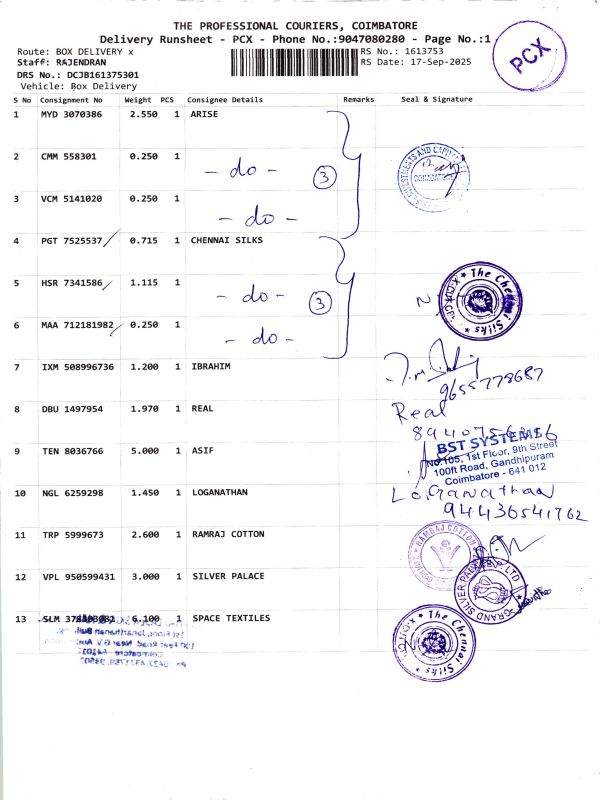 THE PROFESSIONAL COURIERS, COIMBATORE
Delivery Runsheet - PCX - Phone No.:9047080280 - Page No.:1
Route: BOX DELIVERY x
RS No.: 1613753
Staff: RAJENDRAN
RS Date: 17-Sep-2025
DRS No.: DCJB161375301
Vehicle: Box Delivery
PCX
S No Consignment No Weight PCS Consignee Details Remarks Seal & Signature
1 MYD 3070386 2.550 1 ARISE
2 CMM 558301 0.250 1 - do - 3
COIMBATORE
3 VCM 5141020 0.250 1 - do -
4 PGT 7525537 0.715 1 CHENNAI SILKS
5 HSR 7341586 1.115 1 - do - 3
The Chennai Silks
6 MAA 712181982 0.250 1 - do -
7 IXM 508996736 1.200 1 IBRAHIM
9655778687
8 DBU 1497954 1.970 1 REAL
Real
9 TEN 8036766 5.000 1 ASIF
BST SYSTEMS
No:105, 1st Floor, 9th Street
100ft Road, Gandhipuram
Coimbatore - 641 012
10 NGL 6259298 1.450 1 LOGANATHAN
Loganathan
94436541762
11 TRP 5999673 2.600 1 RAMRAJ COTTON
RAMRAJ COTTON
12 VPL 950599431 3.000 1 SILVER PALACE
GRAND SILVER PALACE (P) LTD
13 SLM 6.100 1 SPACE TEXTILES
The Chennai Silks